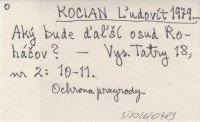 KOCIAN Ľudovít 1979...
Aký bude ďaľší osud Ro-
háčov? — Vys. Tatry 18,
nr 2: 10-11.
Ochrona przyrody